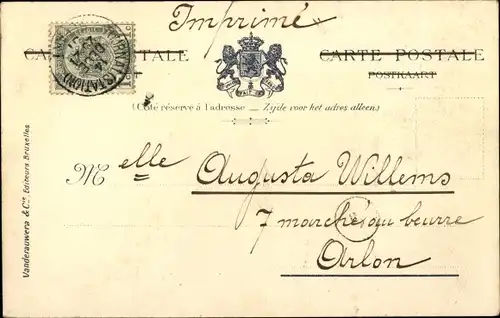 Imprimé
CARTE POSTALE CARTE POSTALE
POSTKAART
(STATION)
(Côté réservé à l'adresse — Zijde voor het adres alleen.)
Melle Augusta Willems
7 marché au beurre
Arlon
Vanderauwera & Cie, Editeurs Bruxelles